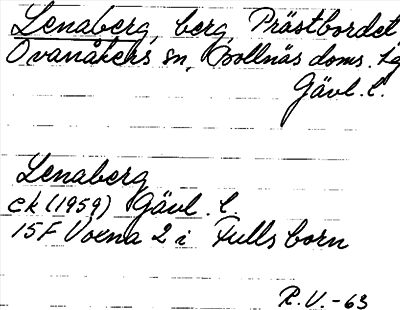 Lenaberg, berg, Prästbordet,
Ovanåkers sn, Bollnäs doms. lg
Gävl. l.
Lenaberg
ek (1959) Gävl. l
15F Voxna 2 i Fullsborn
R.V.-63